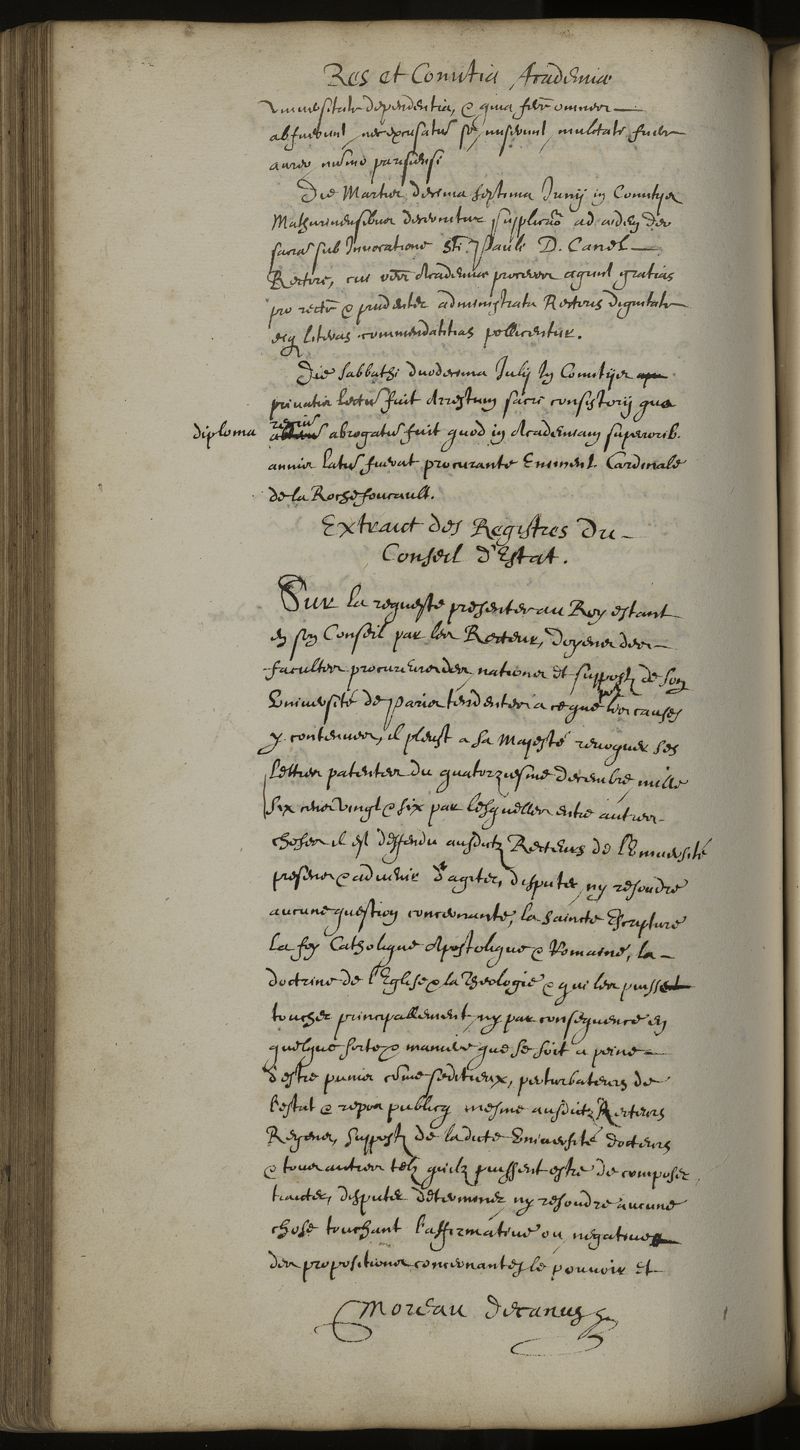 Res et Comitia Academiæ
Universitate dependentia, & quia fere omnes
abfuerunt, nec excusatū se miserunt, mulctati fuere
aureo numō parisiensi
Die Martis decima septima Junij in Comitijs
Mathurinensibus decernitur supplicāo ad ædem deo
sacrā sub Invocatione Sti Pauli D. Canel
Rectore, cui vēro Academiæ proceres agunt gratias
pro rectē & prudenter administrata Rectoris dignitate
eiq literas commendatitias pollicentur.
Die sabbathi duodecima Julij In Comitijs
privatis lectū fuit Arrestum sacri consistorij quo
regiū
diploma abrogatū fuit quod in Academiam superiorib.
annis latū fuerat procurante Eminent. Cardinale
de la Rochefoucault.
Extraict des Registres Du
Conseil d'Estat.
Sur la requeste presentee au Roy estant
en son Conseil par les Recteur, doyens des
facultez procureurs des nations et suppostz de son
Université de paris tendentes a ce que pour les causes
y contenues, il pleust a Sa Majesté revoquer ses
Lettres patentes du quatorziesme decembre mille
six cens vingt & six par lesquelles entre autres
choses il est deffendu ausditz Recteurs de l'Université
presens & advenir d'agiter, disputer ny resoudre
aucune question concernante, la saincte Escripture
la foy Catholique Apostolique & Romaine, la
doctrine de l'Eglise & la Theologie & qui les puisse
toucher principallement, ny par consequence en
quelque sorte & maniere que se soit a peine
d'estre punis cōme seditieux, perturbateurs de
l'estat & repos publicq mesme ausditz Recteurs
Regens, suppostz de ladite Université docteurs
& tous autres telz quilz puissent estre de composer
traicter, disputer determiner ny resoudre aucune
chose touchant l'affirmative ou negative
des propositions concernantes le pouvoir et
Moreau decanus